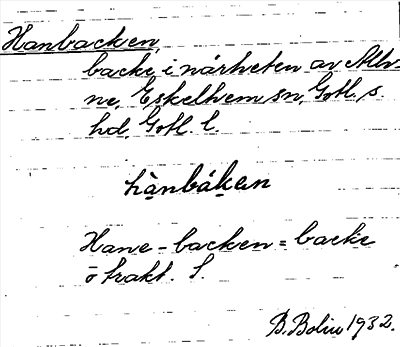 Hanbacken,
backe i närheten av Allv-
ne, Eskelhem sn, Gotl. s.
hd, Gotl. l.
hànbákan
Hane-backen = backe
o trakt. S.
B. Bolin 1932.